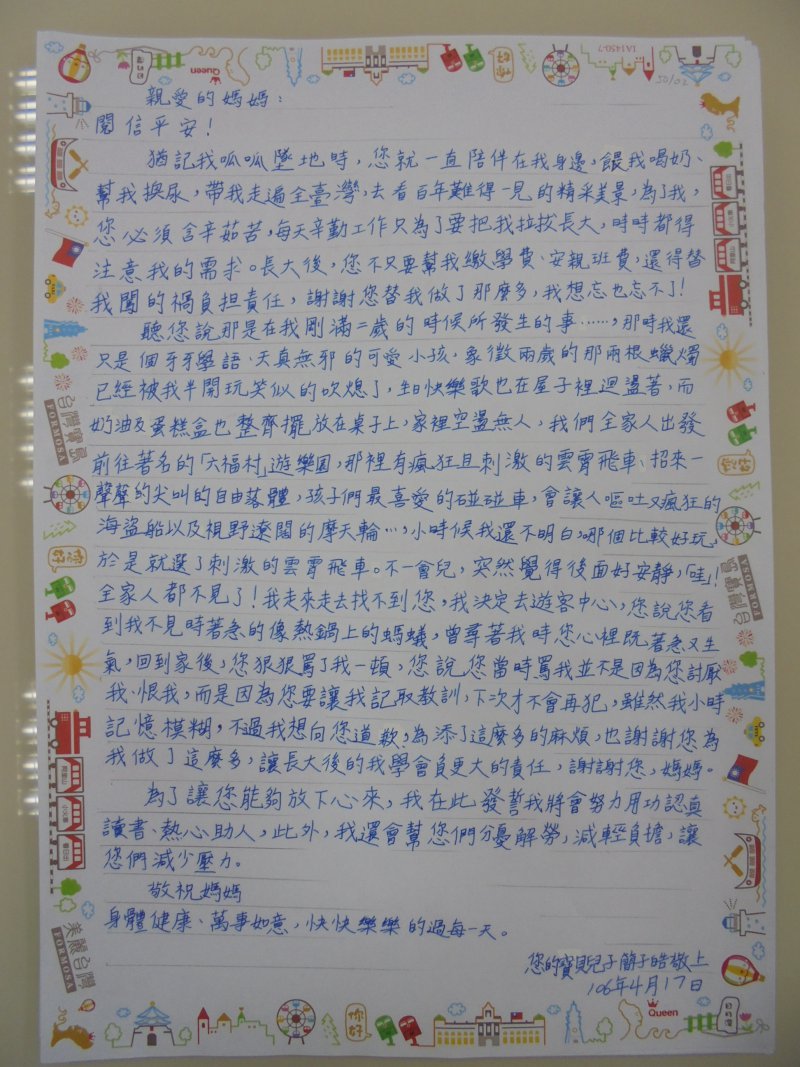 IA1450-7
50102
Queen
你好
親愛的媽媽：
閱信平安！
猶記我呱呱墜地時，您就一直陪伴在我身邊，餵我喝奶、
幫我換尿，帶我走遍全臺灣，去看百年難得一見的精采美景，為了我，
您必須含辛茹苦，每天辛勤工作只為了要把我拉拔長大，時時都得
注意我的需求。長大後，您不只要幫我繳學費、安親班費，還得替
我闖的禍負担責任，謝謝您替我做了那麼多，我想忘也忘不了！
聽您說那是在我剛滿二歲的時候所發生的事……，那時我還
只是個牙牙學語、天真無邪的可愛小孩，象徵兩歲的那兩根蠟燭
已經被我半開玩笑似的吹熄了，生日快樂歌也在屋子裡迴盪著，而
奶油及蛋糕盒也整齊擺放在桌子上，家裡空盪無人，我們全家人出發
前往著名的「六福村」遊樂園，那裡有瘋狂且刺激的雲霄飛車、招來一
聲聲的尖叫的自由落體，孩子們最喜愛的碰碰車，會讓人嘔吐又瘋狂的
海盜船以及視野遼闊的摩天輪…，小時候我還不明白，哪個比較好玩，
於是就選了刺激的雲霄飛車。不一會兒，突然覺得後面好安靜，「哇」！
全家人都不見了！我走來走去找不到您，我決定去遊客中心，您說您看
到我不見時著急的像熱鍋上的螞蟻，曾尋著我時您心裡既著急又生
氣，回到家後，您狠狠罵了我一頓，您說您當時罵我並不是因為您討厭
我、恨我，而是因為您要讓我記取教訓，下次才不會再犯，雖然我小時
記憶模糊，不過我想向您道歉，為添了這麼多的麻煩，也謝謝您為
我做了這麼多，讓長大後的我學會負更大的責任，謝謝您，媽媽。
為了讓您能夠放下心來，我在此發誓我將會努力用功認真
讀書、熱心助人，此外，我還會幫您們分憂解勞，減輕負擔，讓
您們減少壓力。
敬祝媽媽
身體健康、萬事如意，快快樂樂的過每一天。
您的寶貝兒子簡子皓敬上
106年4月17日
台灣寶島
FORMOSA
美麗台灣
FORMOSA
阿里山
小火車
看日出
你好
Queen